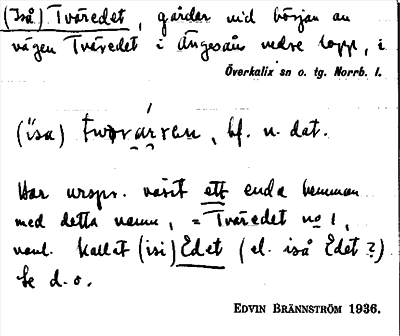 (Iså) Tväredet, gårdar vid början av
vägen Tväredet i Ängesåns nedre lopp, i
Överkalix sn o. tg. Norrb. l.
( isa) , bf. n. dat.
Har urspr. varit ett enda hemman
med detta namn, = Tväredet no 1,
vanl. kallat (isi) Edet (el. iså Edet ?)
Se d. o.
EDVIN BRÄNNSTRÖM 1936.